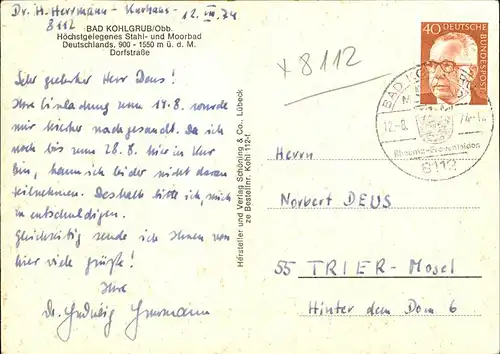 Dr. H. Herrmann - Kurhaus - 12. VIII. 74
8112
BAD KOHLGRUB/Obb.
Höchstgelegenes Stahl- und Moorbad
Deutschlands, 900 - 1550 m ü. d. M.
Dorfstraße
Sehr geehrter Herr Deus!
Ihre Einladung vom 14.8. wurde
mir hierher nachgesandt. Da ich
noch bis zum 28.8. hier in Kur
bin, kann ich leider nicht daran
teilnehmen. Deshalb bitte ich, mich
zu entschuldigen.
Gleichzeitig sende ich Ihnen von
hier viele Grüße!
Ihre
Dr. Hedwig Herrmann
Hersteller und Verlag Schöning & Co., Lübeck
ze Bestellnr. Kohl 112-f
x 8112
40 DEUTSCHE
BUNDESPOST
BAD KOHLGRUB
12.-8. 74-1
8112
Herrn
Norbert DEUS
55 TRIER-Mosel
Hinter dem Dom 6